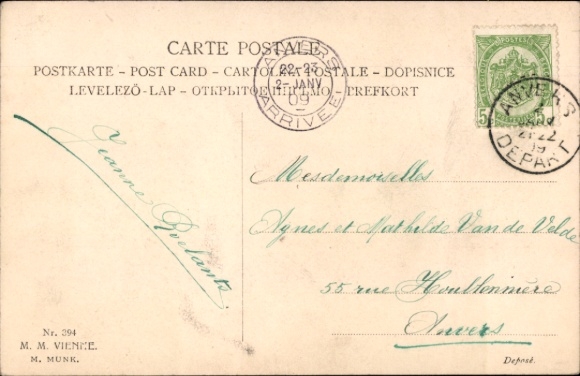 CARTE POSTALE
POSTKARTE – POST CARD – CARTOLINA POSTALE – DOPISNICE
LEVELEZŐ-LAP – ОТКРЫТОЕ ПИСЬМО – TREFKORT
ANVERS
22-23
2- JANV
09
ARRIVÉE
POSTES
5
ANVERS
21-22
09
DEPART
Jeanne Roelants
Mesdemoiselles
Agnes et Mathilde Van de Velde
55 rue Houblonnière
Anvers
Nr. 394
M. M. VIENNE.
M. MUNK.
Deposé.